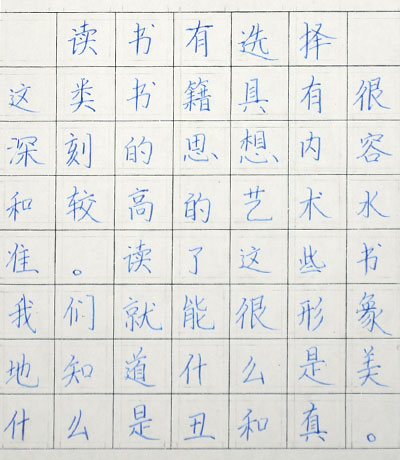 读书有选择
这类书籍具有很
深刻的思想内容
和较高的艺术水
准。读了这些书
我们就能很形象
地知道什么是美
什么是丑和真。